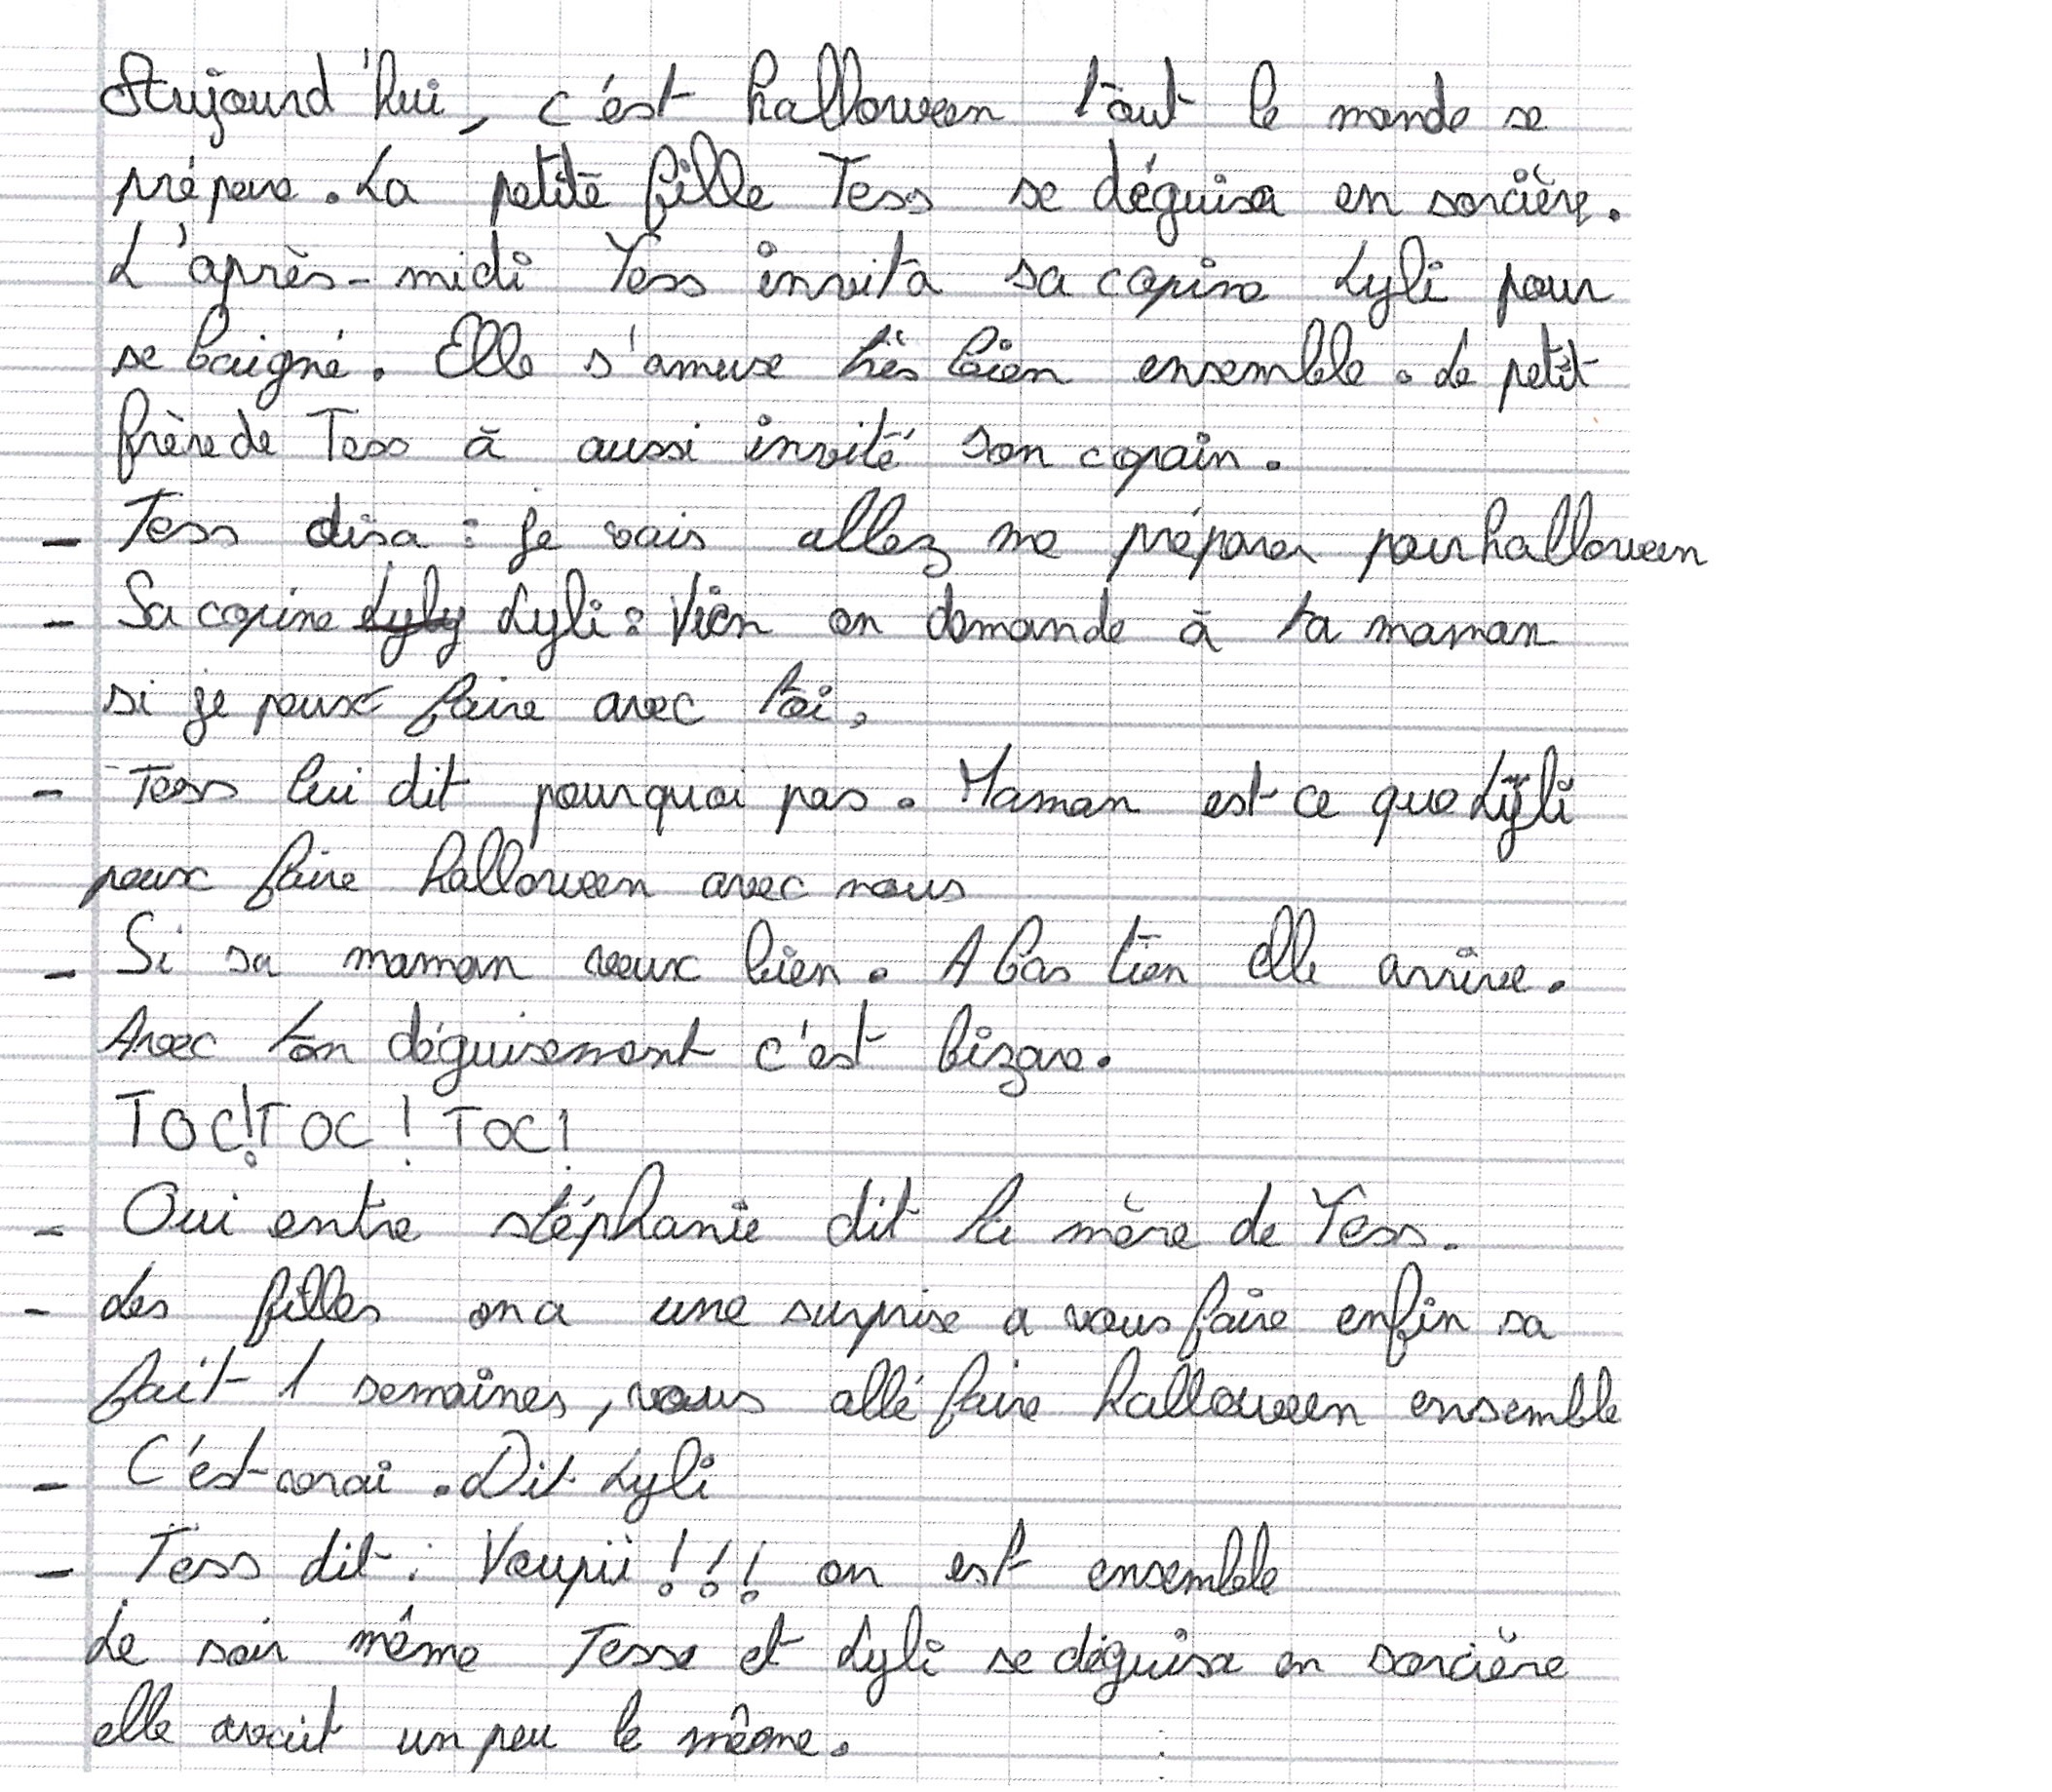 Aujourd'hui, c'est halloween tout le monde se
prépare. La petite fille Tess se déguisa en sorcière.
L'après-midi Tess invita sa copine Lyli pour
se baigné. Elle s'amuse très bien ensemble. Le petit
frère de Tess à aussi invité son copain.
- Tess disa : je vais allez me préparer pour halloween
- Sa copine Lyly Lyli : Vien on demande à ta maman
si je peux faire avec toi.
- Tess lui dit pourquoi pas. Maman est ce que Lyli
peux faire halloween avec nous
- Si sa maman veux bien. A bas tien elle arrive.
Avec ton déguisement c'est bizare.
TOC ! TOC ! TOC !
- Oui entre stéphanie dit la mère de Tess.
- Les filles on a une surprise a vous faire enfin sa
fait 1 semaines, vous allé faire halloween ensemble
- C'est vrai . Dit Lyli
- Tess dit : Youpii !!! on est ensemble
Le soir même Tesse et Lyli se déguise en sorcière
elle avait un peu le même.